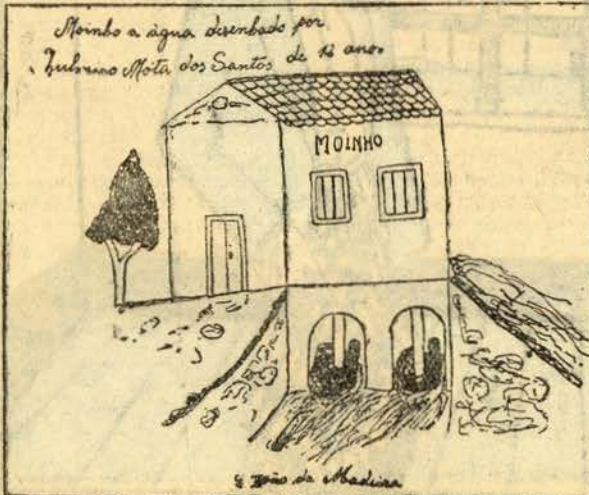 Moinho a água desenhado por
Mota dos Santos de 12 anos
MOINHO
S. João da Madeira